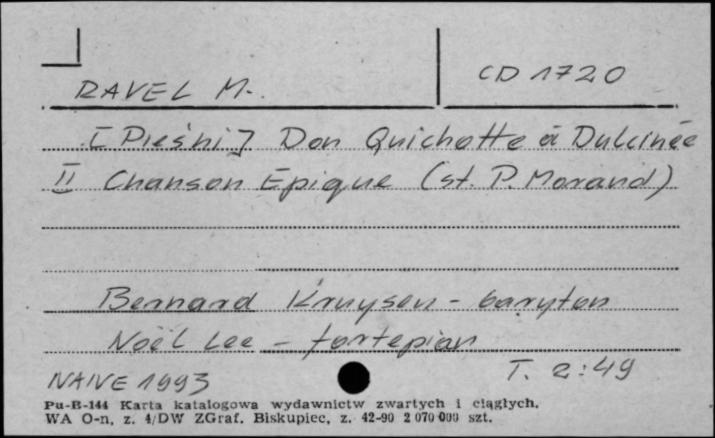 RAVEL M. CD 1720
[Pieśni] Don Quichotte à Dulcinée
II Chanson Epique (st. P. Morand)
Bernard Kruysen - baryton
Noël Lee - fortepian
NAIVE 1993 T. 2:49
Pu-B-144 Karta katalogowa wydawnictw zwartych i ciągłych.
WA O-n, z. 4/DW ZGraf. Biskupiec, z. 42-90 2 070 000 szt.